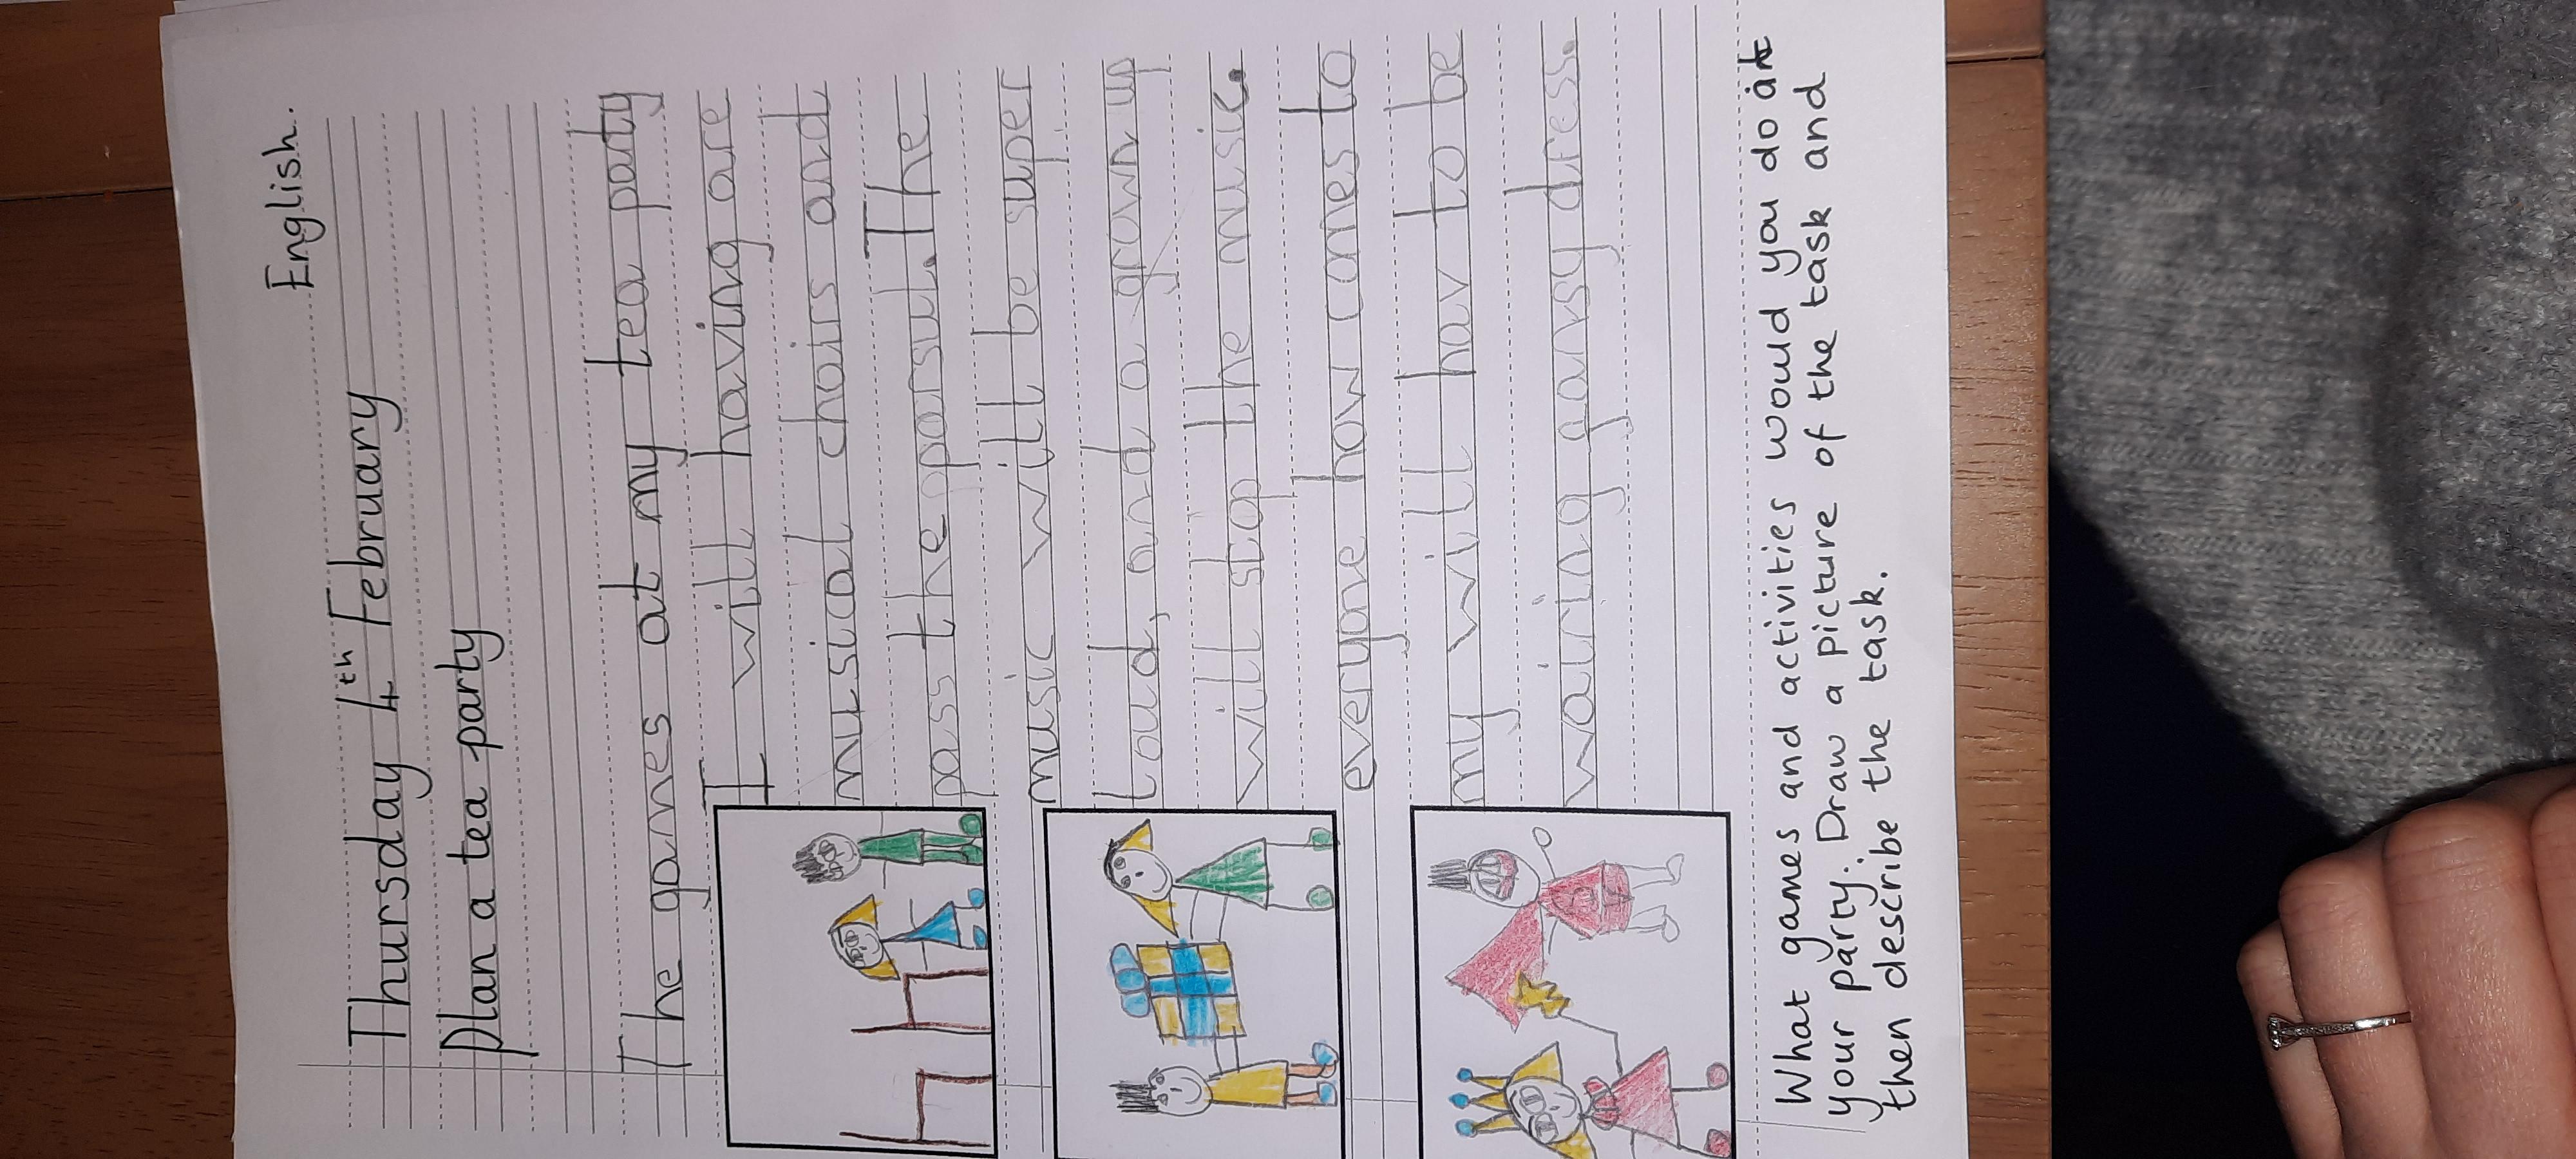 English.
Thursday 4th February
Plan a tea party
The games at my tea paty
I will having are
musical chairs and
pass the parsul. The
music will be super
loud, and a grown up
will stop the music.
everyone how comes to
my will hav to be
wairing garsy dress.
What games and activities would you do at
your party. Draw a picture of the task and
then describe the task.